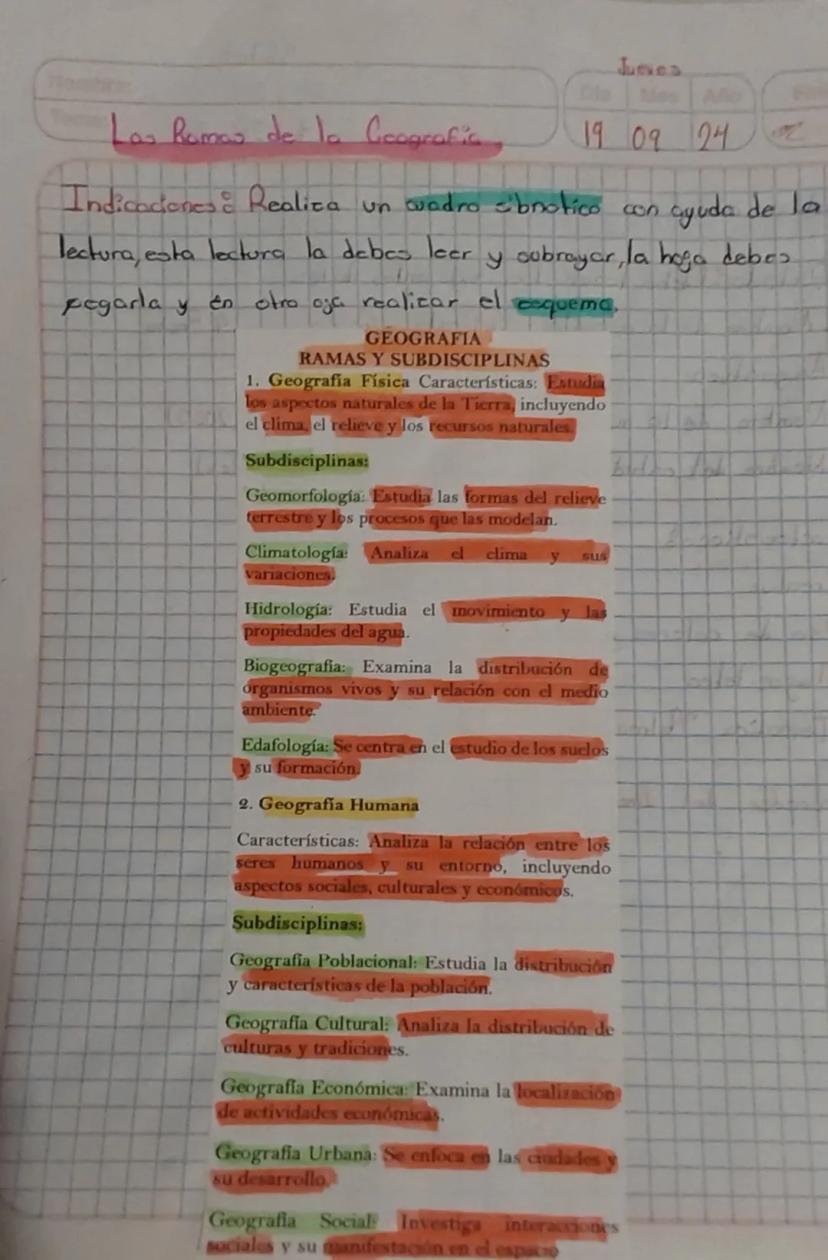 Jueves
Nombre:
Día Mes Año
Tema:
Las Ramas de la Geografía.
19 09 24
Indicaciones: Realiza un cuadro sibnotico con ayuda de la
lectura, esta lectura la debes leer y subrayar, la hoja debes
pegarla y en otro oja realizar el esquema.
GEOGRAFIA
RAMAS Y SUBDISCIPLINAS
1. Geografía Física Características: Estudia
los aspectos naturales de la Tierra, incluyendo
el clima, el relieve y los recursos naturales.
Subdisciplinas:
Geomorfología: Estudia las formas del relieve
terrestre y los procesos que las modelan.
Climatología: Analiza el clima y sus
variaciones.
Hidrología: Estudia el movimiento y las
propiedades del agua.
Biogeografía: Examina la distribución de
organismos vivos y su relación con el medio
ambiente.
Edafología: Se centra en el estudio de los suelos
y su formación.
2. Geografía Humana
Características: Analiza la relación entre los
seres humanos y su entorno, incluyendo
aspectos sociales, culturales y económicos.
Subdisciplinas:
Geografía Poblacional: Estudia la distribución
y características de la población.
Geografía Cultural: Analiza la distribución de
culturas y tradiciones.
Geografía Económica: Examina la localización
de actividades económicas.
Geografía Urbana: Se enfoca en las ciudades y
su desarrollo.
Geografía Social: Investiga interacciones
sociales y su manifestación en el espacio